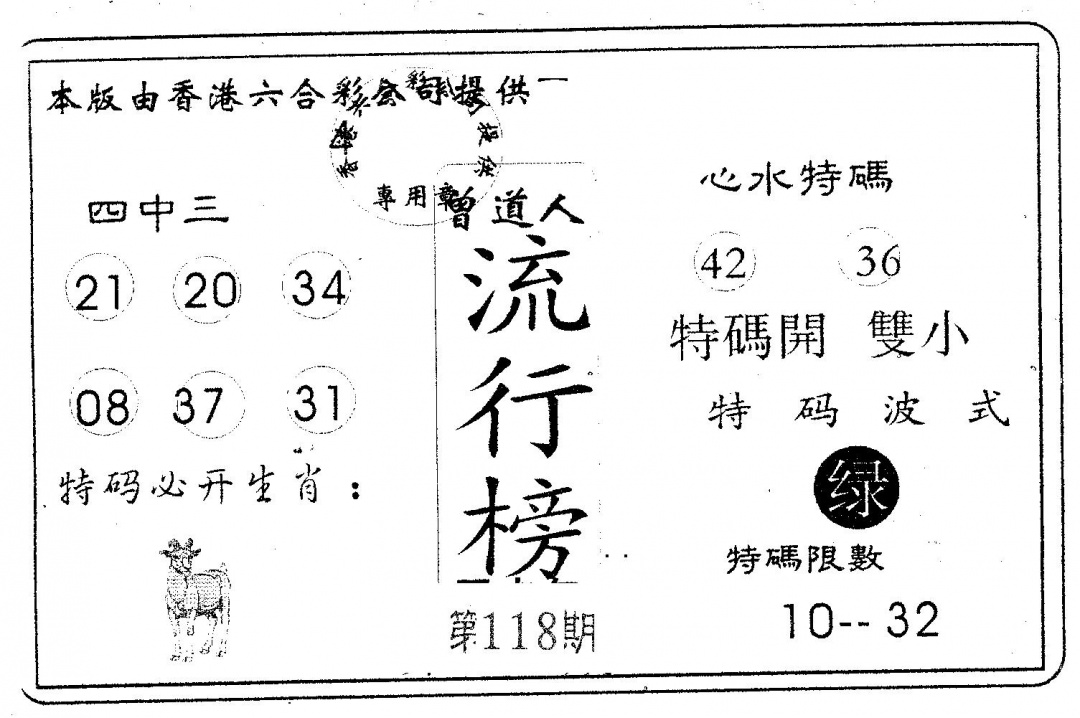 本版由香港六合彩公司提供
專用章
四中三
21 20 34
08 37 31
特码必开生肖：
曾道人
流行榜
第118期
心水特碼
42 36
特碼開 雙小
特码波式
绿
特碼限數
10--32